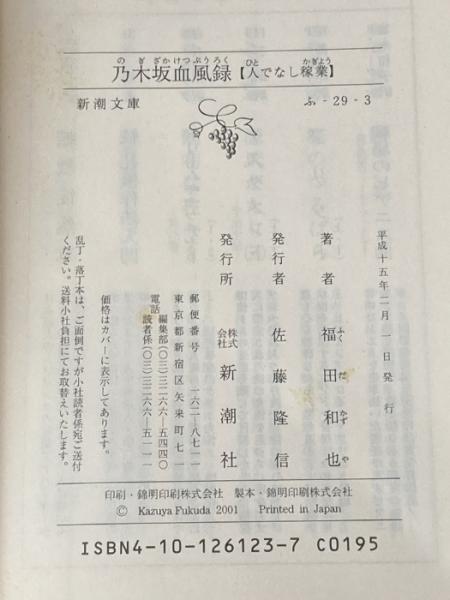 乃木坂血風録【人でなし稼業】
のぎざかけつぷうろく
ひと
かぎょう
新潮文庫
ふ-29-3
平成十五年二月一日発行
著者 福田和也
ふくだかずや
発行者 佐藤隆信
発行所 株式会社 新潮社
郵便番号 一六二-八七一一
東京都新宿区矢来町七一
電話 編集部(〇三)三二六六-五四四〇
読者係(〇三)三二六六-五一一一
価格はカバーに表示してあります。
乱丁・落丁本は、ご面倒ですが小社読者係宛ご送付
ください。送料小社負担にてお取替えいたします。
印刷・錦明印刷株式会社 製本・錦明印刷株式会社
© Kazuya Fukuda 2001 Printed in Japan
ISBN4-10-126123-7 C0195